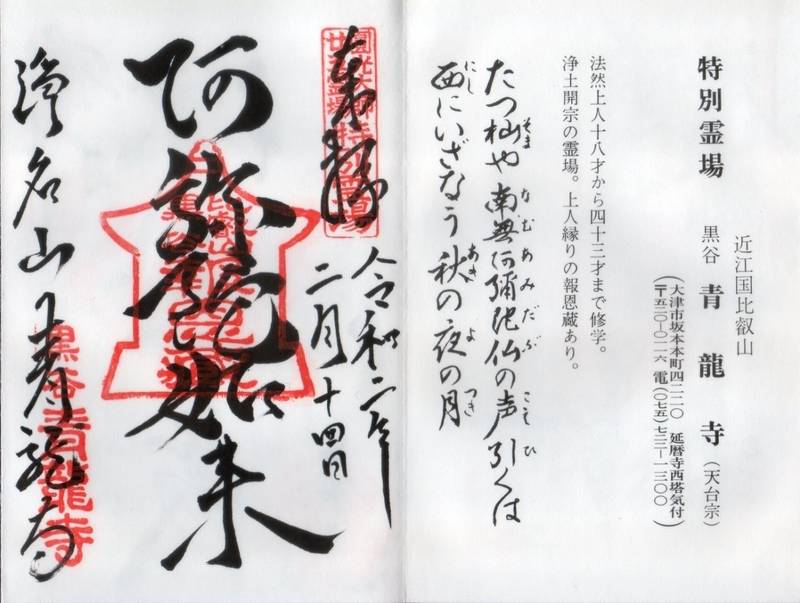 特別霊場
近江国比叡山
黒谷 青龍寺(天台宗)
(大津市坂本本町四二二〇 延暦寺西塔気付
〒五二〇-〇一一六 電(〇七五)七三一-一三〇〇)
法然上人十八才から四十三才まで修学。
浄土開宗の霊場。上人縁りの報恩蔵あり。
たつ杣や南無阿彌陀仏の声引くは
そま なむあみだぶ こゑひ
西にいざなう秋の夜の月
にし あき よ つき
奉拝
特別霊場
令和二年
二月十四日
阿弥陀如来
浄名山 青龍寺
黒谷青龍寺